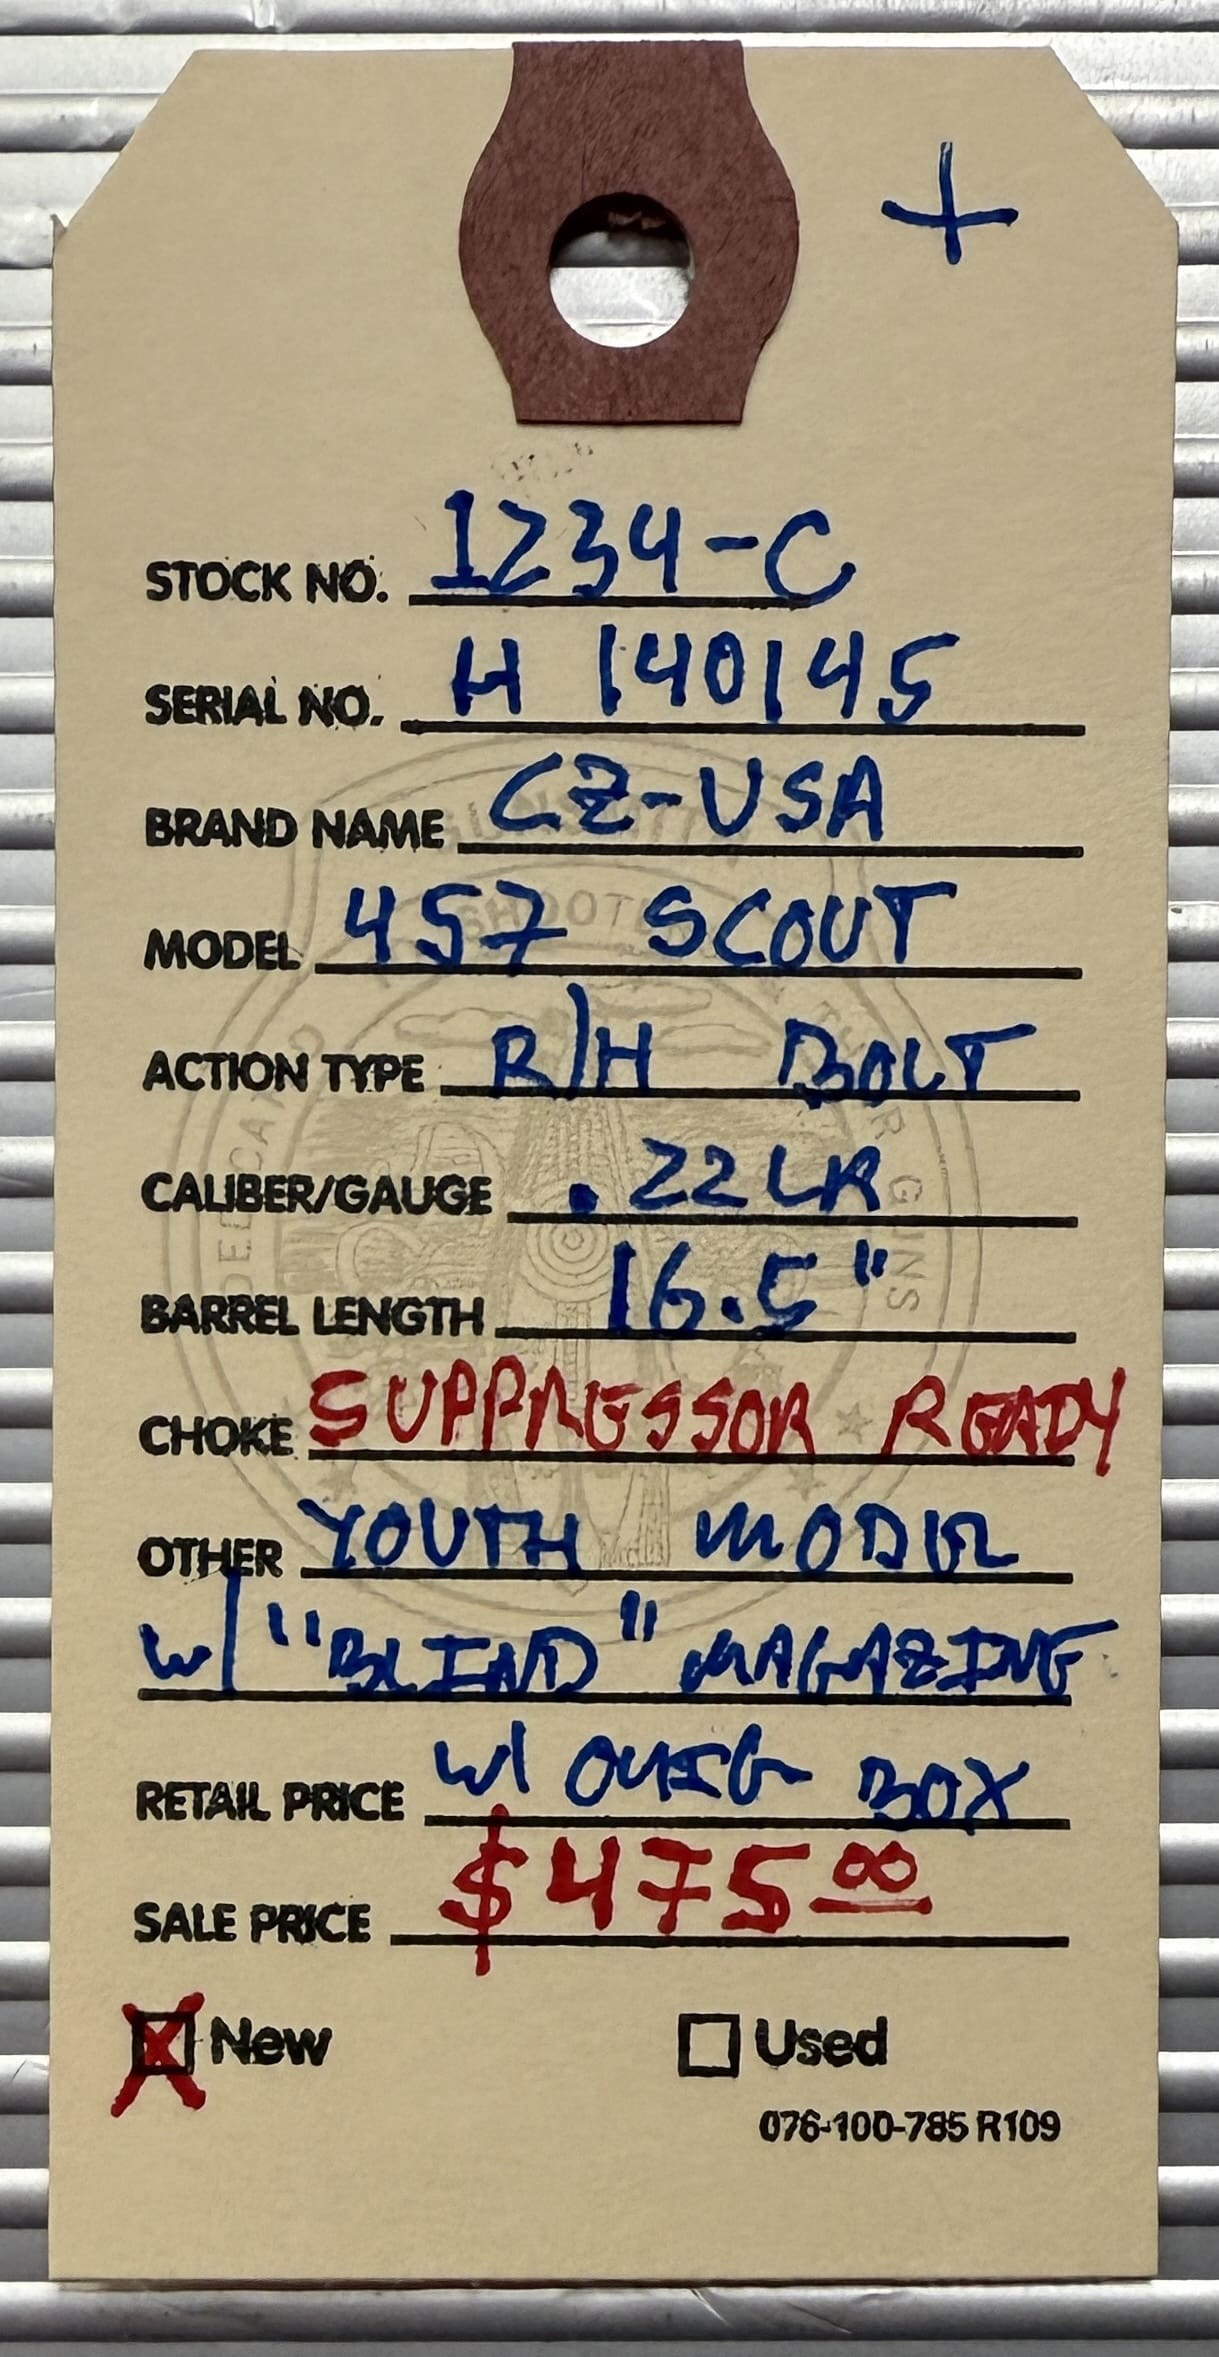 +
STOCK NO. 1234-C
SERIAL NO. H 140145
BRAND NAME CZ-USA
MODEL 457 SCOUT
ACTION TYPE R/H BOLT
CALIBER/GAUGE .22LR
BARREL LENGTH 16.5"
CHOKE SUPPRESSOR READY
OTHER YOUTH MODEL
w/ "BLIND" MAGAZINE
RETAIL PRICE w/ ORIG BOX
SALE PRICE $475.00
X New Used
076-100-785 R109